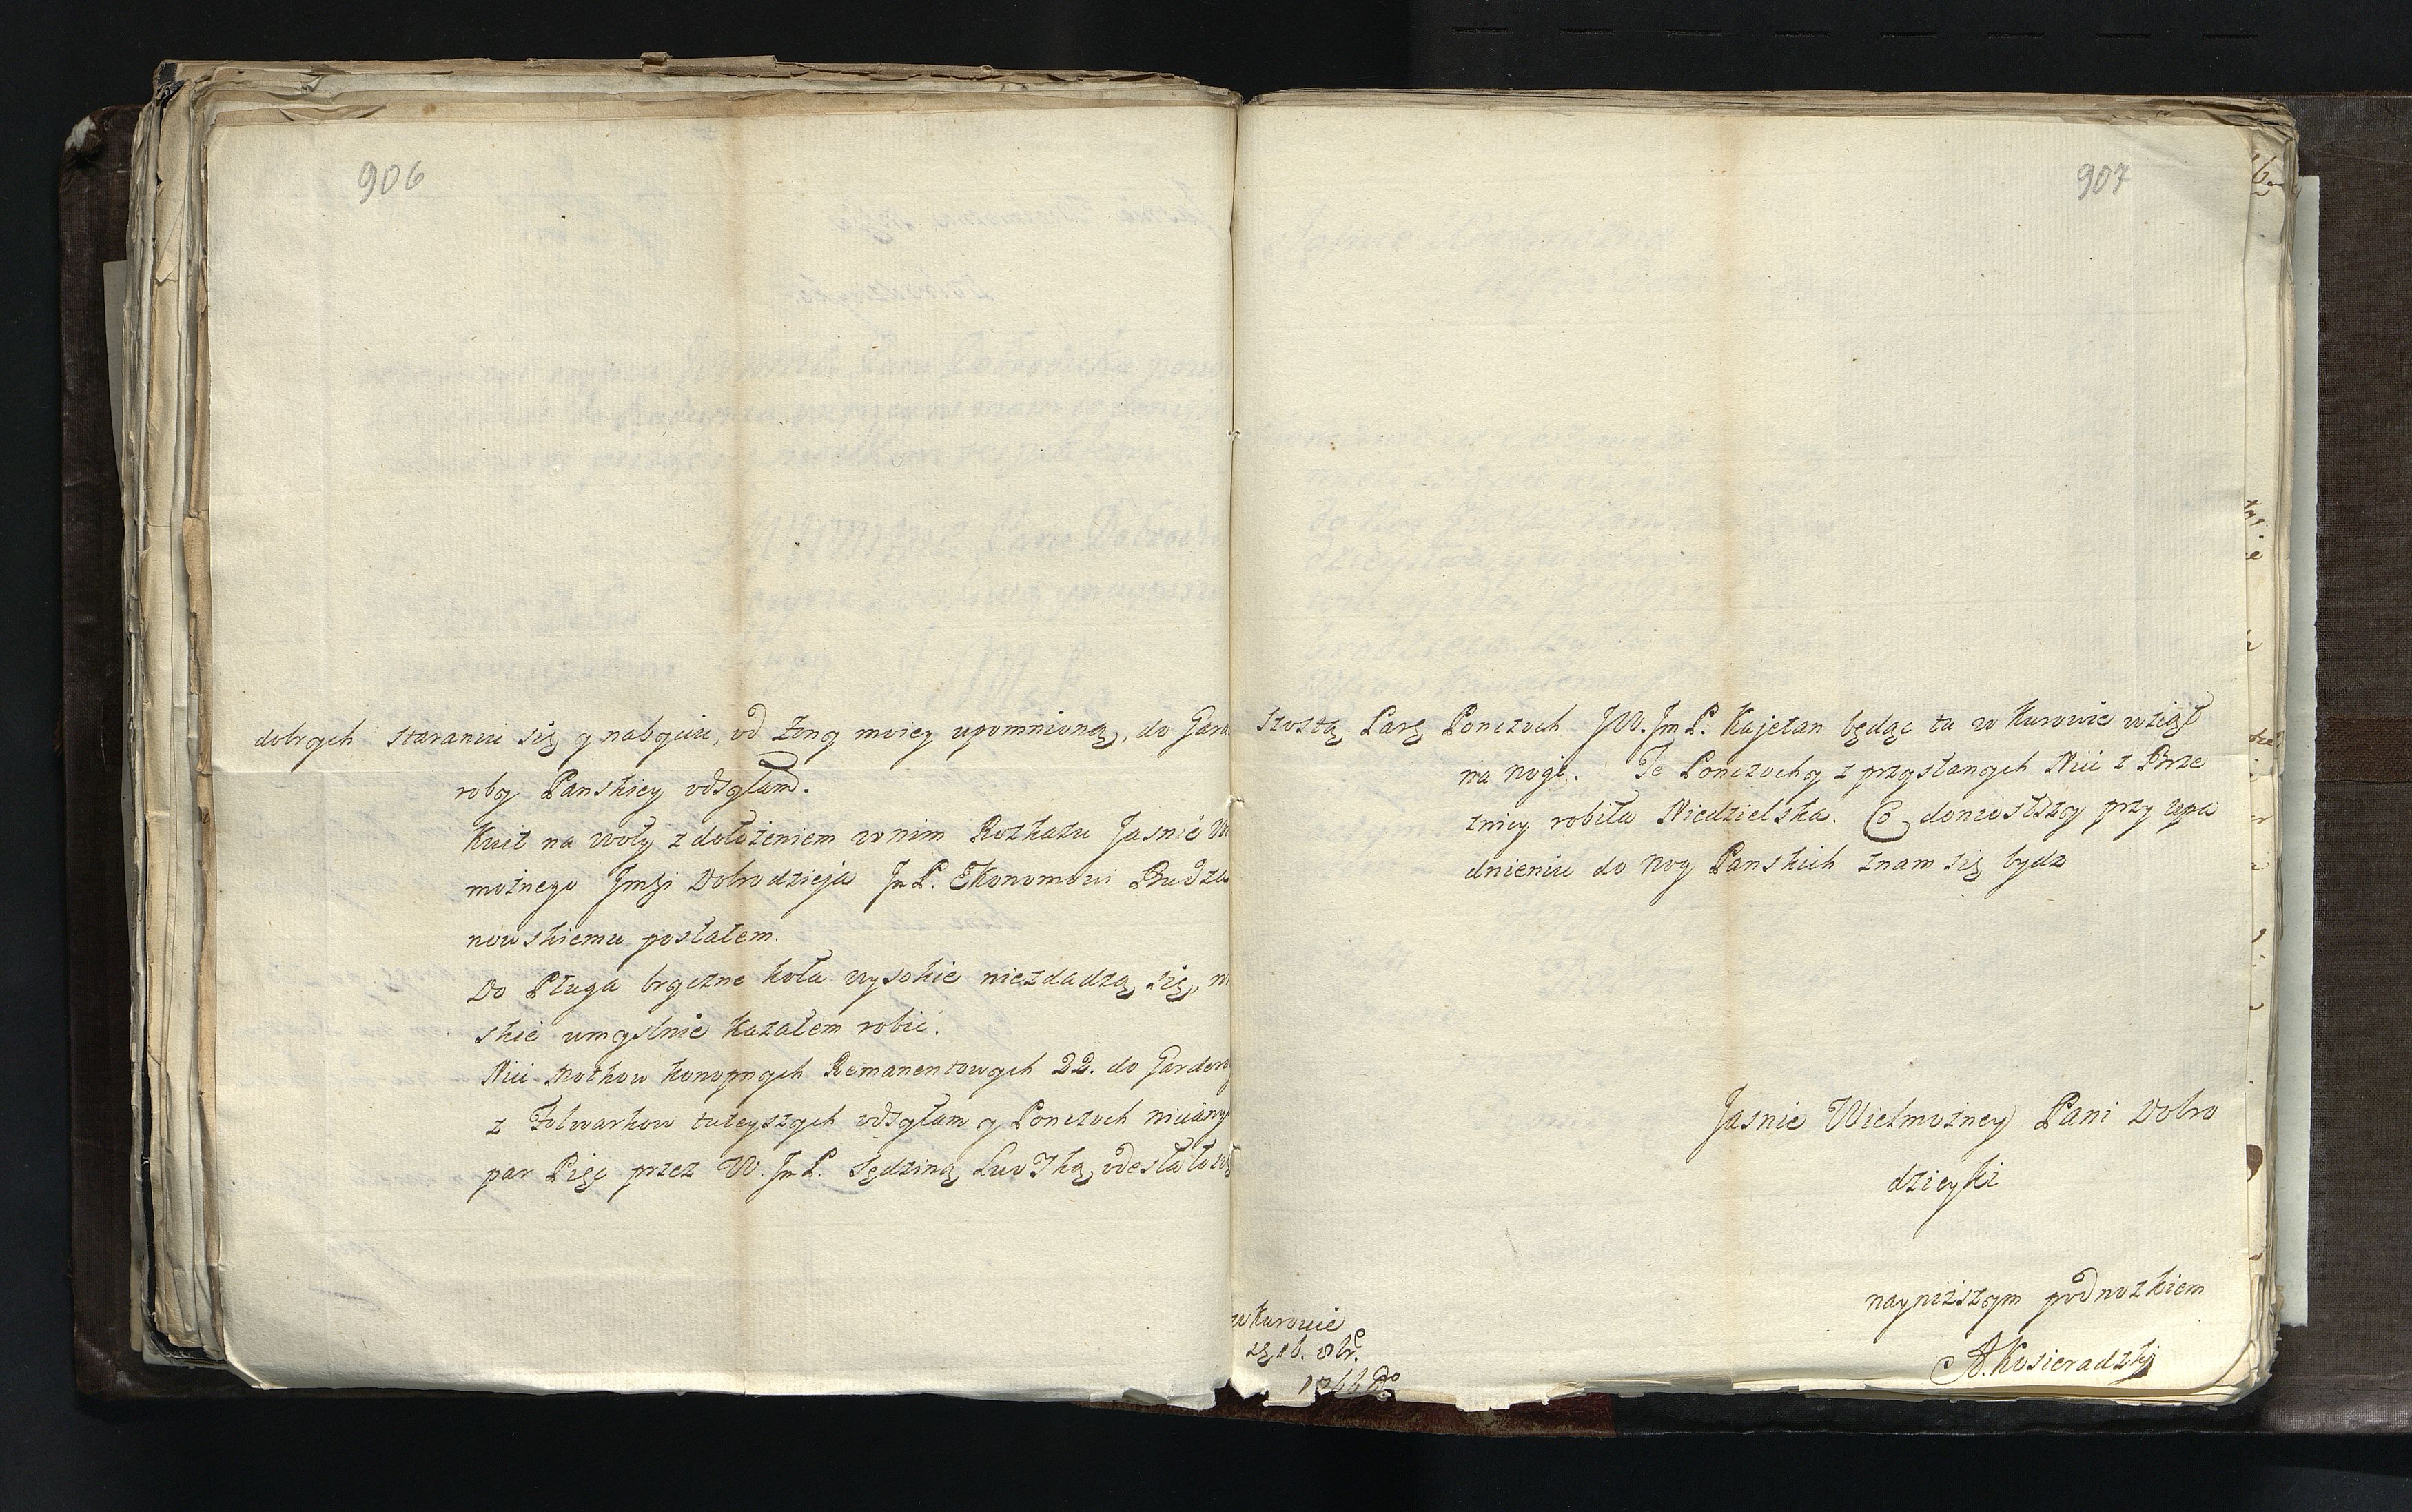 906
dobrych staraniu się y nabyciu, od żony moiey upomnioną, do Gard
roby Panskiey odsyłam.
Kwit na woły z dołożeniem w nim Rozkazu Jasnie W
możnego Jmści Dobrodzieja Jm P. Ekonomowi Budza
nowskiemu posłałem.
Do Pługa bryczne koła wysokie niezdadzą się,
skie umyslnie kazałem robić.
Nici Motkow konopnych Remanentowych 22. do Gardero
z Folwarkow tuteyszych odsyłam y Ponczoch niciany
par Pięć przez W. Jm P. Sędzinę
907
Szostą Parę Ponczoch JW. Jm P. Kajetan będąc tu w Kurowie wziął
na nogi. Te Ponczochy z przysłanych Nici z Brze
znicy robiła Niedzielska. Co doniosłszy przy upa
dnieniu do Nog Panskich znam się bydz
Jasnie Wielmożney Pani Dobro
dzieyki
nayniższym podnozkiem
A. Kosieradzki
w Kurowie
1766